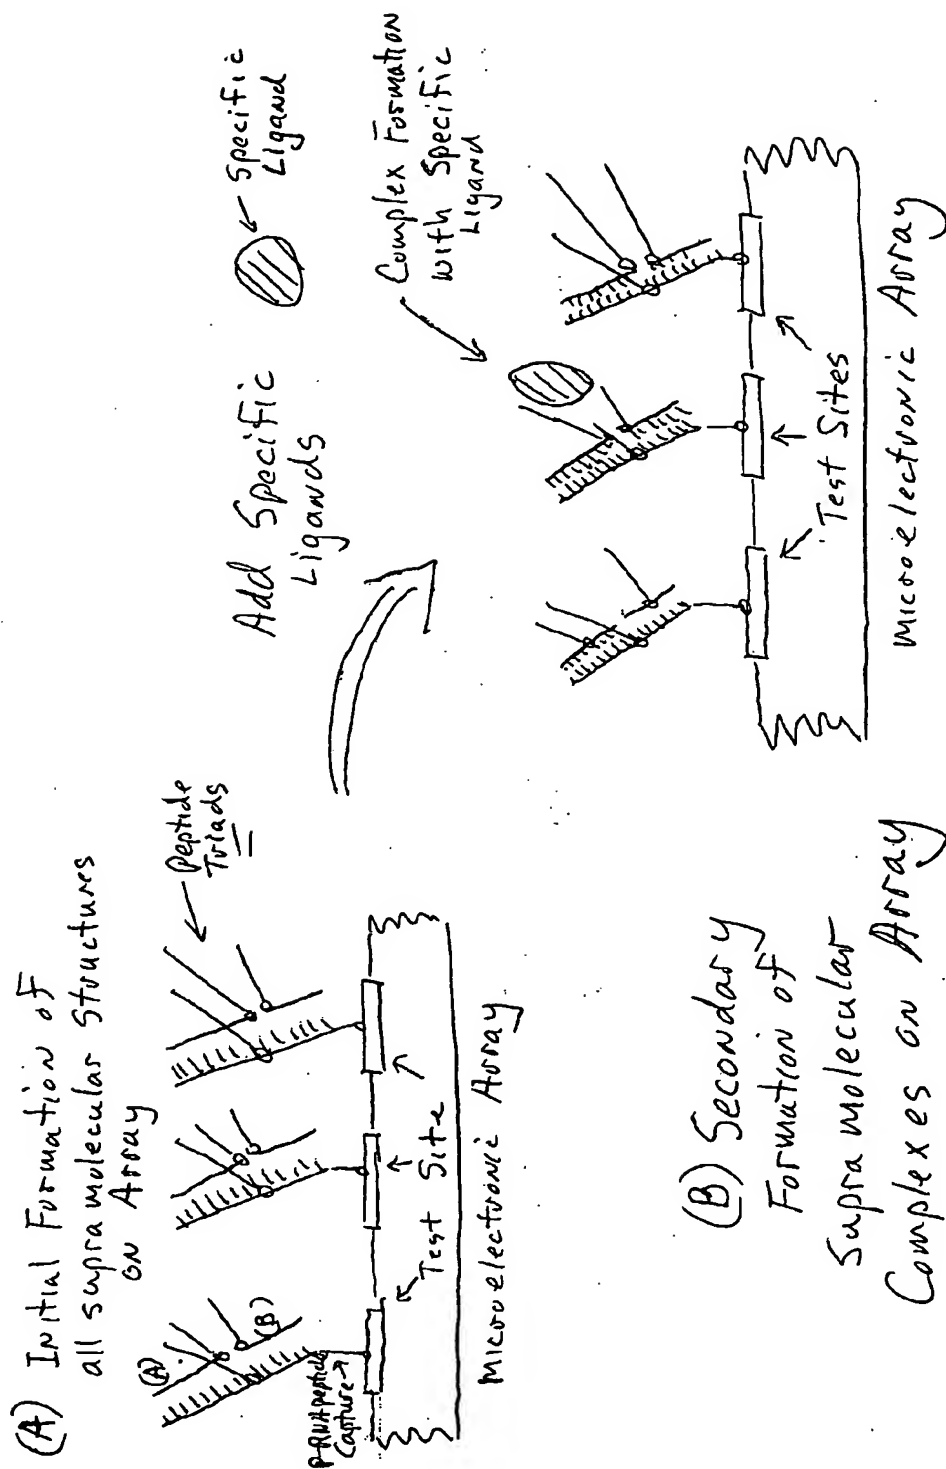 (A) Initial Formation of
all supra molecular Structures
on Array
Peptide
Triads
(A)
(B)
Capture
Test Site
Microelectronic Array
Add Specific
Ligands
Specific
Ligand
Complex Formation
with Specific
Ligand
Test Sites
Microelectronic Array
(B) Secondary
Formation of
Supra molecular
Complexes on Array